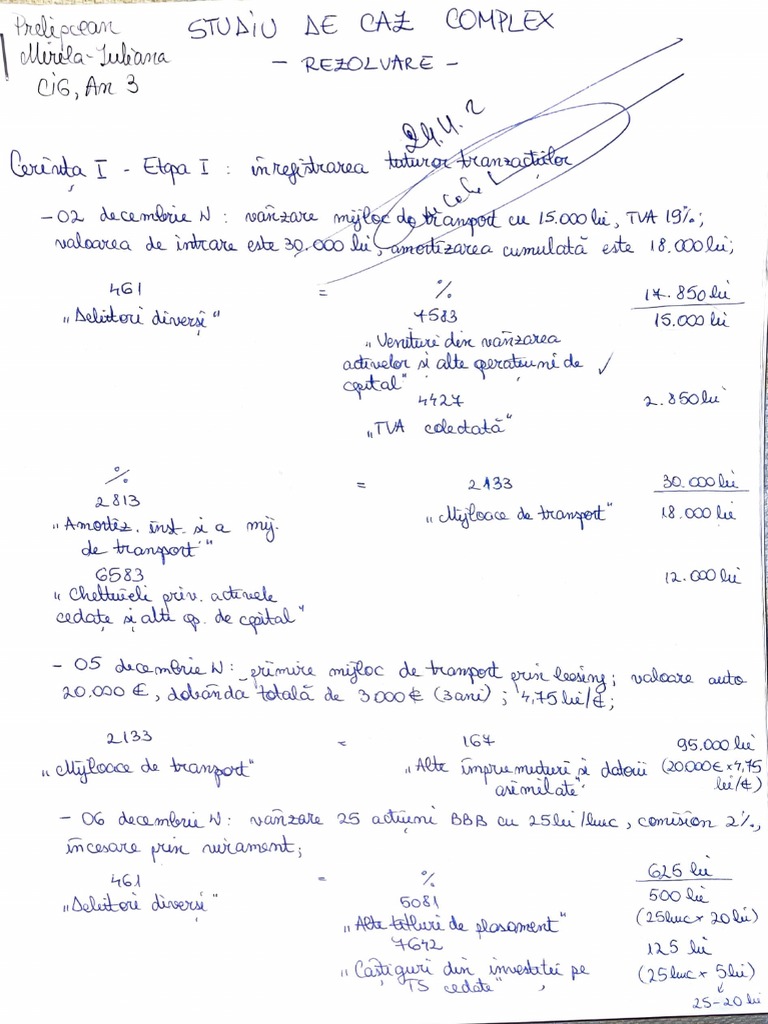 Prelipcean
Mirela-Iuliana
CIG, An 3
STUDIU DE CAZ COMPLEX
- REZOLVARE -
Cerința I - Etapa I : înregistrarea tuturor tranzacțiilor
- 02 decembrie N : vânzare mijloc de transport cu 15.000 lei, TVA 19%;
valoarea de intrare este 30.000 lei, amortizarea cumulată este 18.000 lei;
461 = % 17.850 lei
„Debitori diverși" 7583 15.000 lei
„Venituri din vânzarea
activelor și alte operațiuni de
capital"
4427 2.850 lei
„TVA colectată"
% = 2133 30.000 lei
2813 „Mijloace de transport" 18.000 lei
„Amortiz. inst. și a mij.
de transport"
6583 12.000 lei
„Cheltuieli priv. activele
cedate și alte op. de capital"
- 05 decembrie N: primire mijloc de transport prin leasing; valoare auto
20.000 €, dobândă totală de 3000 € (3 ani) ; 4,75 lei/€;
2133 = 167 95.000 lei
„Mijloace de transport" „Alte împrumuturi și datorii (20.000€ x 4,75
asimilate" lei/€)
- 06 decembrie N: vânzare 25 acțiuni BBB cu 25 lei/buc, comision 2%,
încasare prin virament;
461 = % 625 lei
„Debitori diverși" 5081 500 lei
„Alte titluri de plasament" (25 buc x 20 lei)
7642 125 lei
„Câștiguri din investiții pe (25 buc x 5 lei)
TS cedate"
25-20 lei